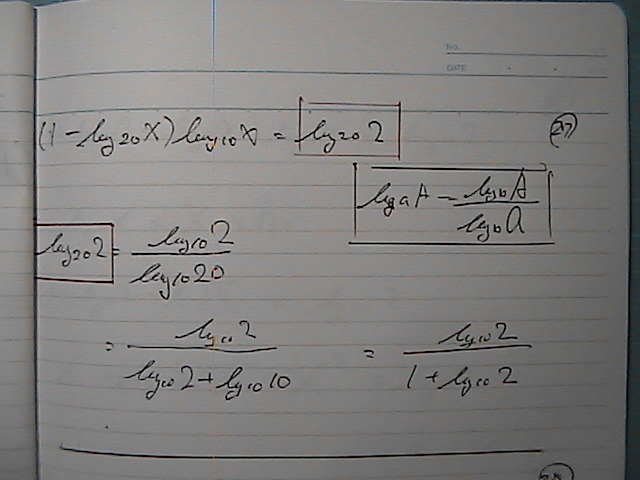 No.
DATE
(1 - log₂₀x) log₁₀x = log₂₀2 (27)
logₐA = log_bA / log_ba
log₂₀2 = log₁₀2 / log₁₀20
= log₁₀2 / (log₁₀2 + log₁₀10) = log₁₀2 / (1 + log₁₀2)